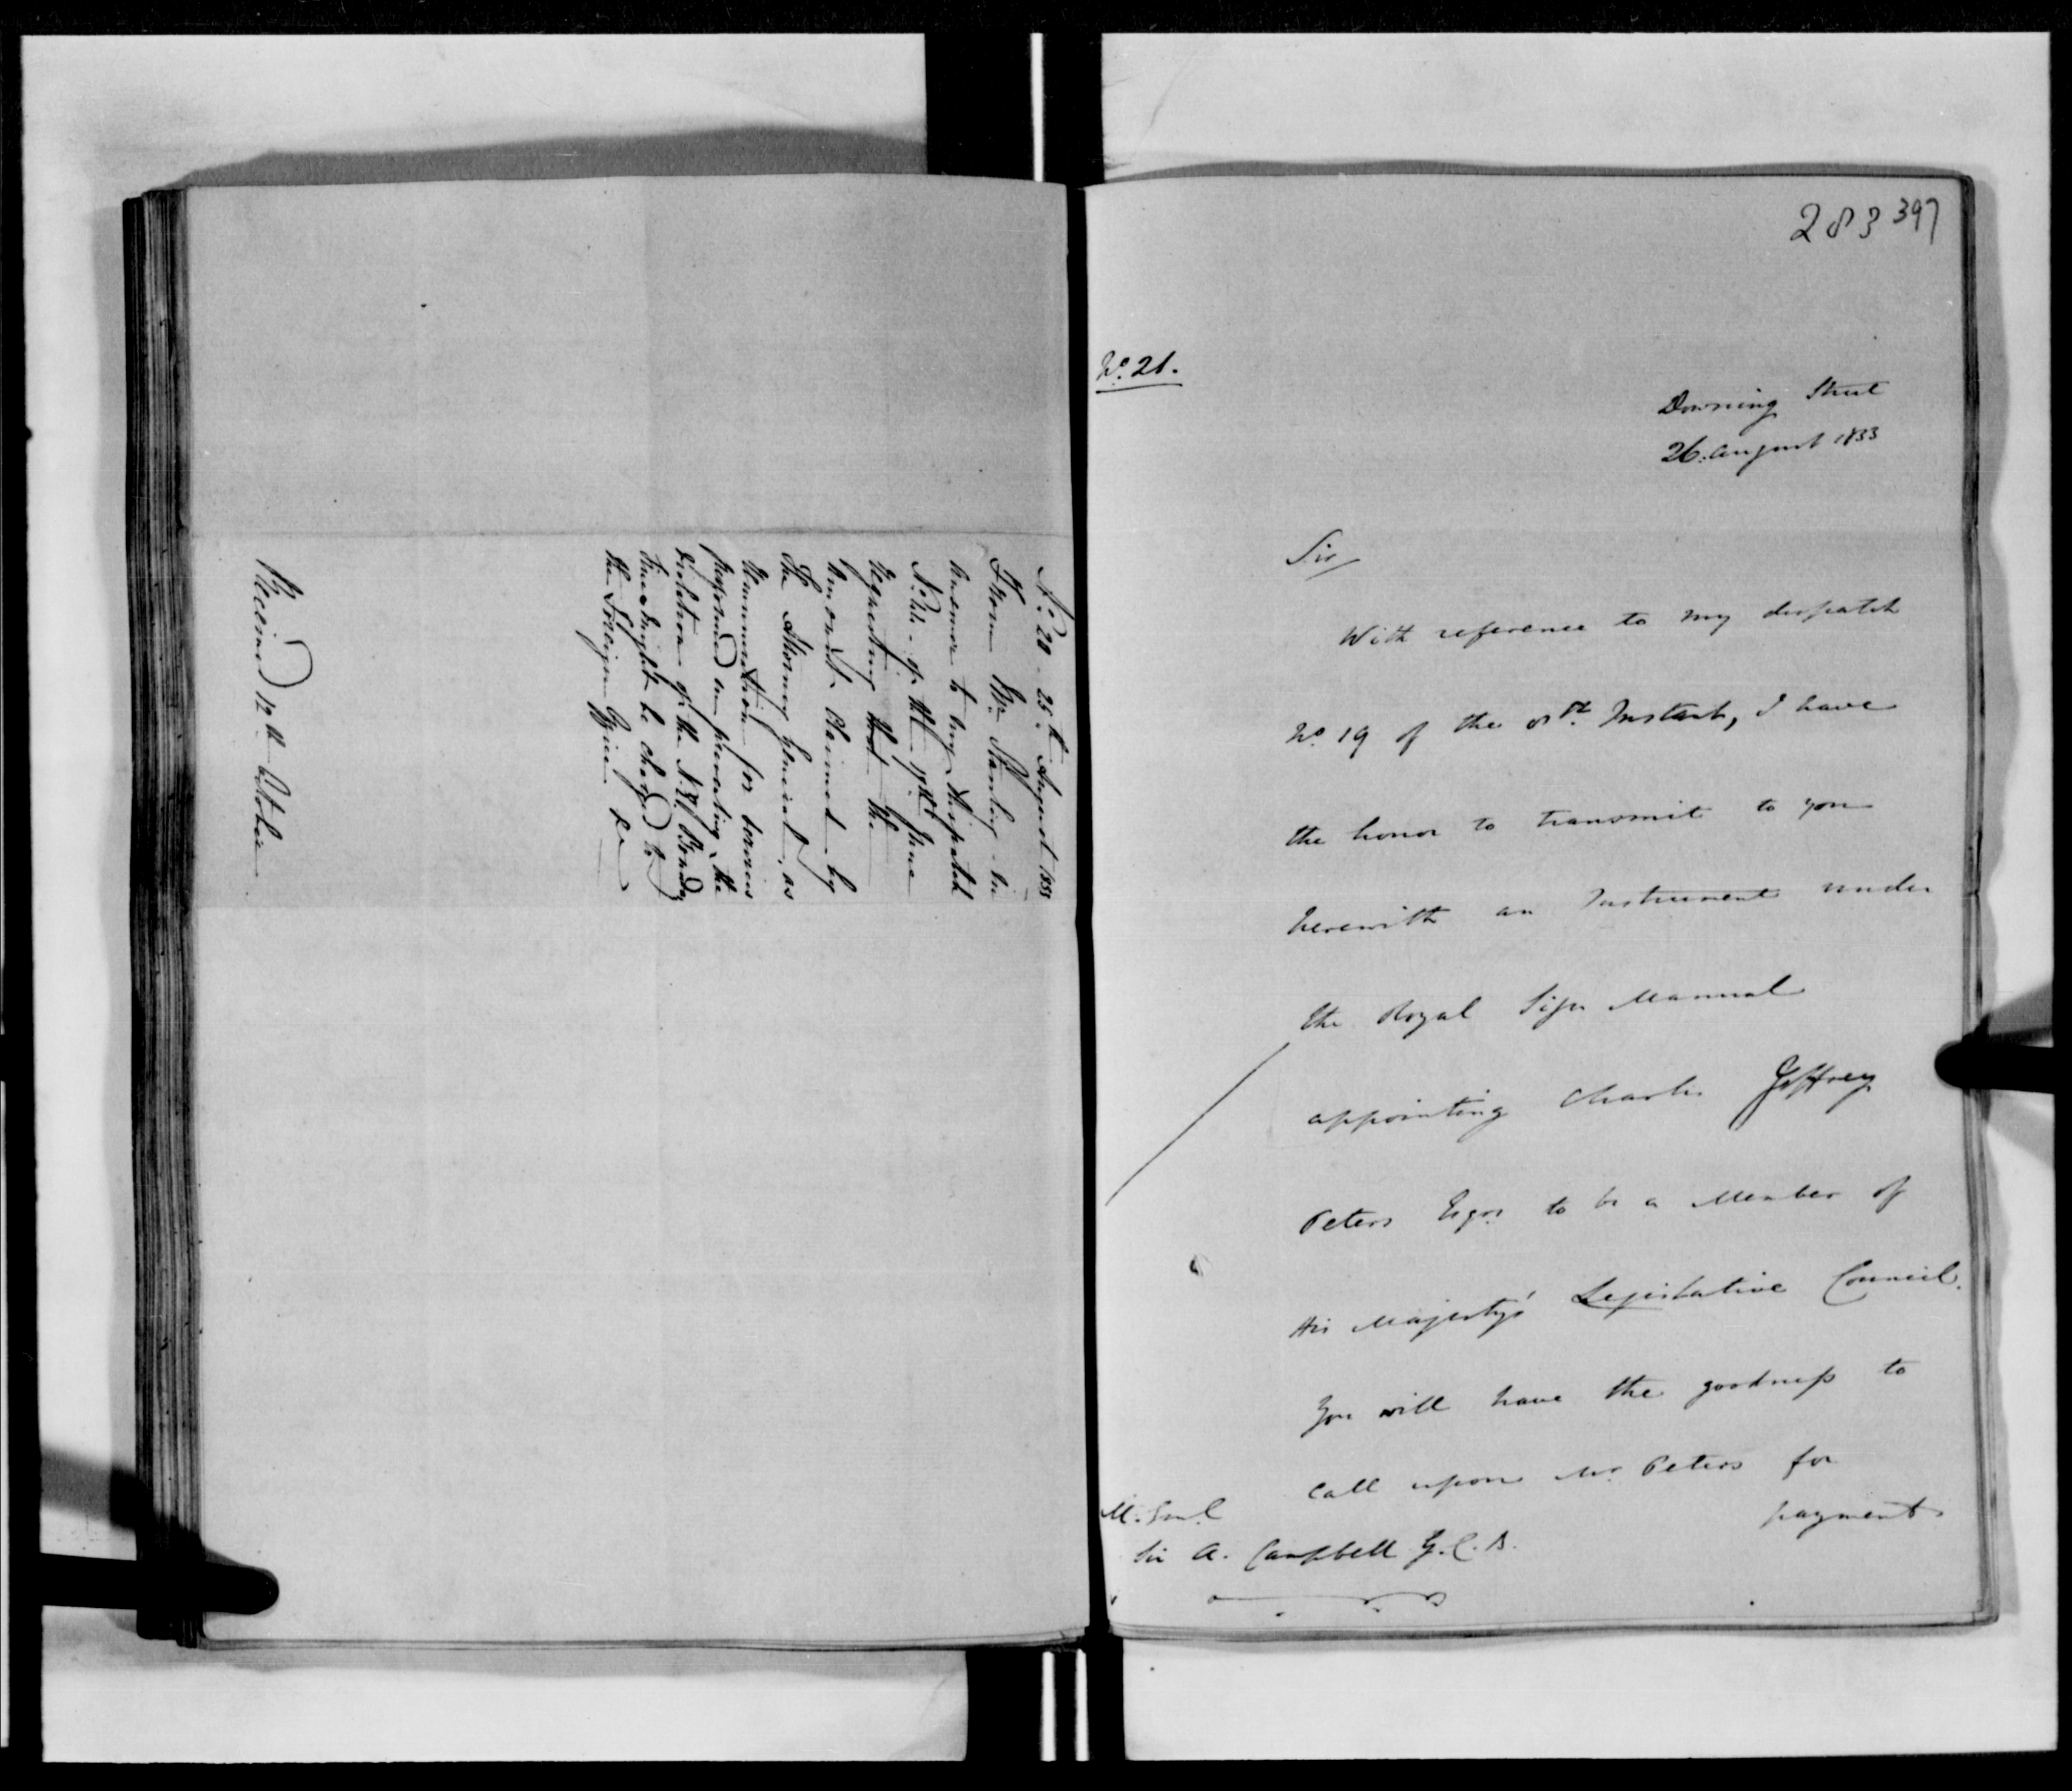 No. 20 - 25th August 1833
From Mr. Stanley - in
answer to my Despatch
No. of the 17th June
requesting that the
amount claimed by
the Attorney General, as
Remuneration for services
performed in preventing the
violation of the N. E. Bound.y
line might be charged to
the Foreign Office &c
Received 12th October
283 397
No. 21.
Downing Street
26. August 1833
Sir
With reference to my despatch
No. 19 of the 8th. Instant, I have
the honor to transmit to you
herewith an Instrument under
the Royal Sign Manual
appointing Charles Jeffrey
Peters Esqre to be a Member of
His Majesty's Legislative Council.
You will have the goodness to
call upon Mr. Peters for
payment
M. Genl.
Sir A. Campbell G.C.B.